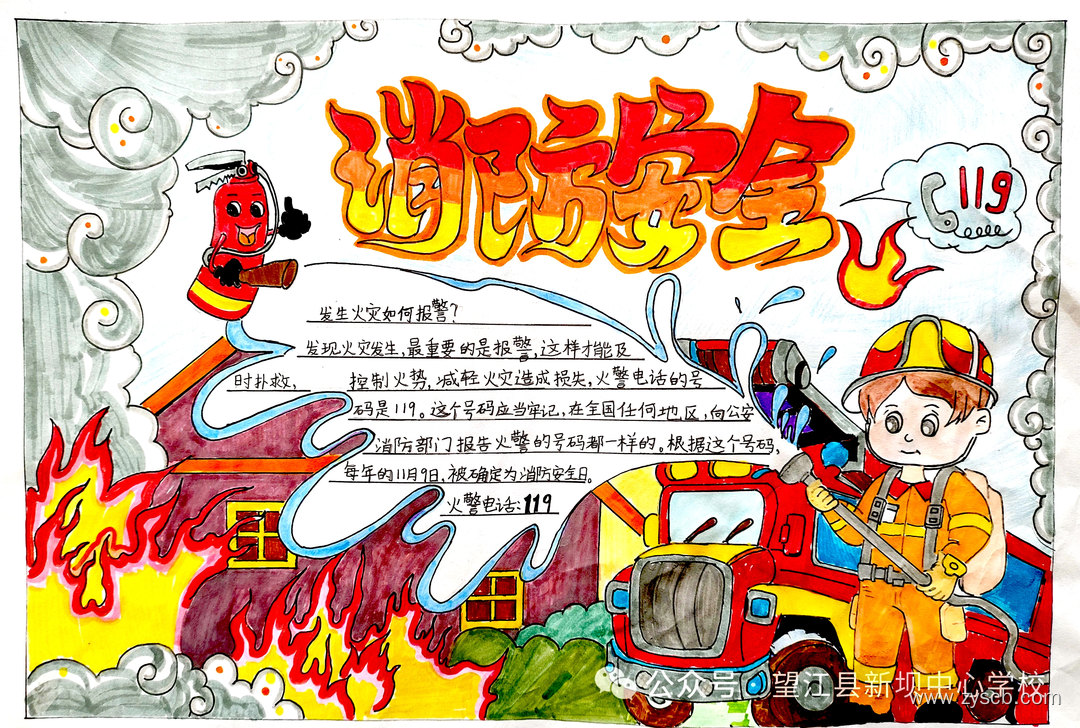 消防安全
119
发生火灾如何报警?
发现火灾发生,最重要的是报警,这样才能及
时扑救, 控制火势,减轻火灾造成损失,火警电话的号
码是119。这个号码应当牢记,在全国任何地区,向公安
消防部门报告火警的号码都一样的。根据这个号码,
每年的11月9日,被确定为消防安全日。
火警电话:119
公众号 望江县新坝中心学校
www.zyscb.com